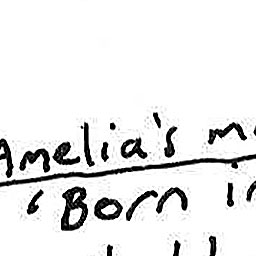 Amelia's m
'Born i